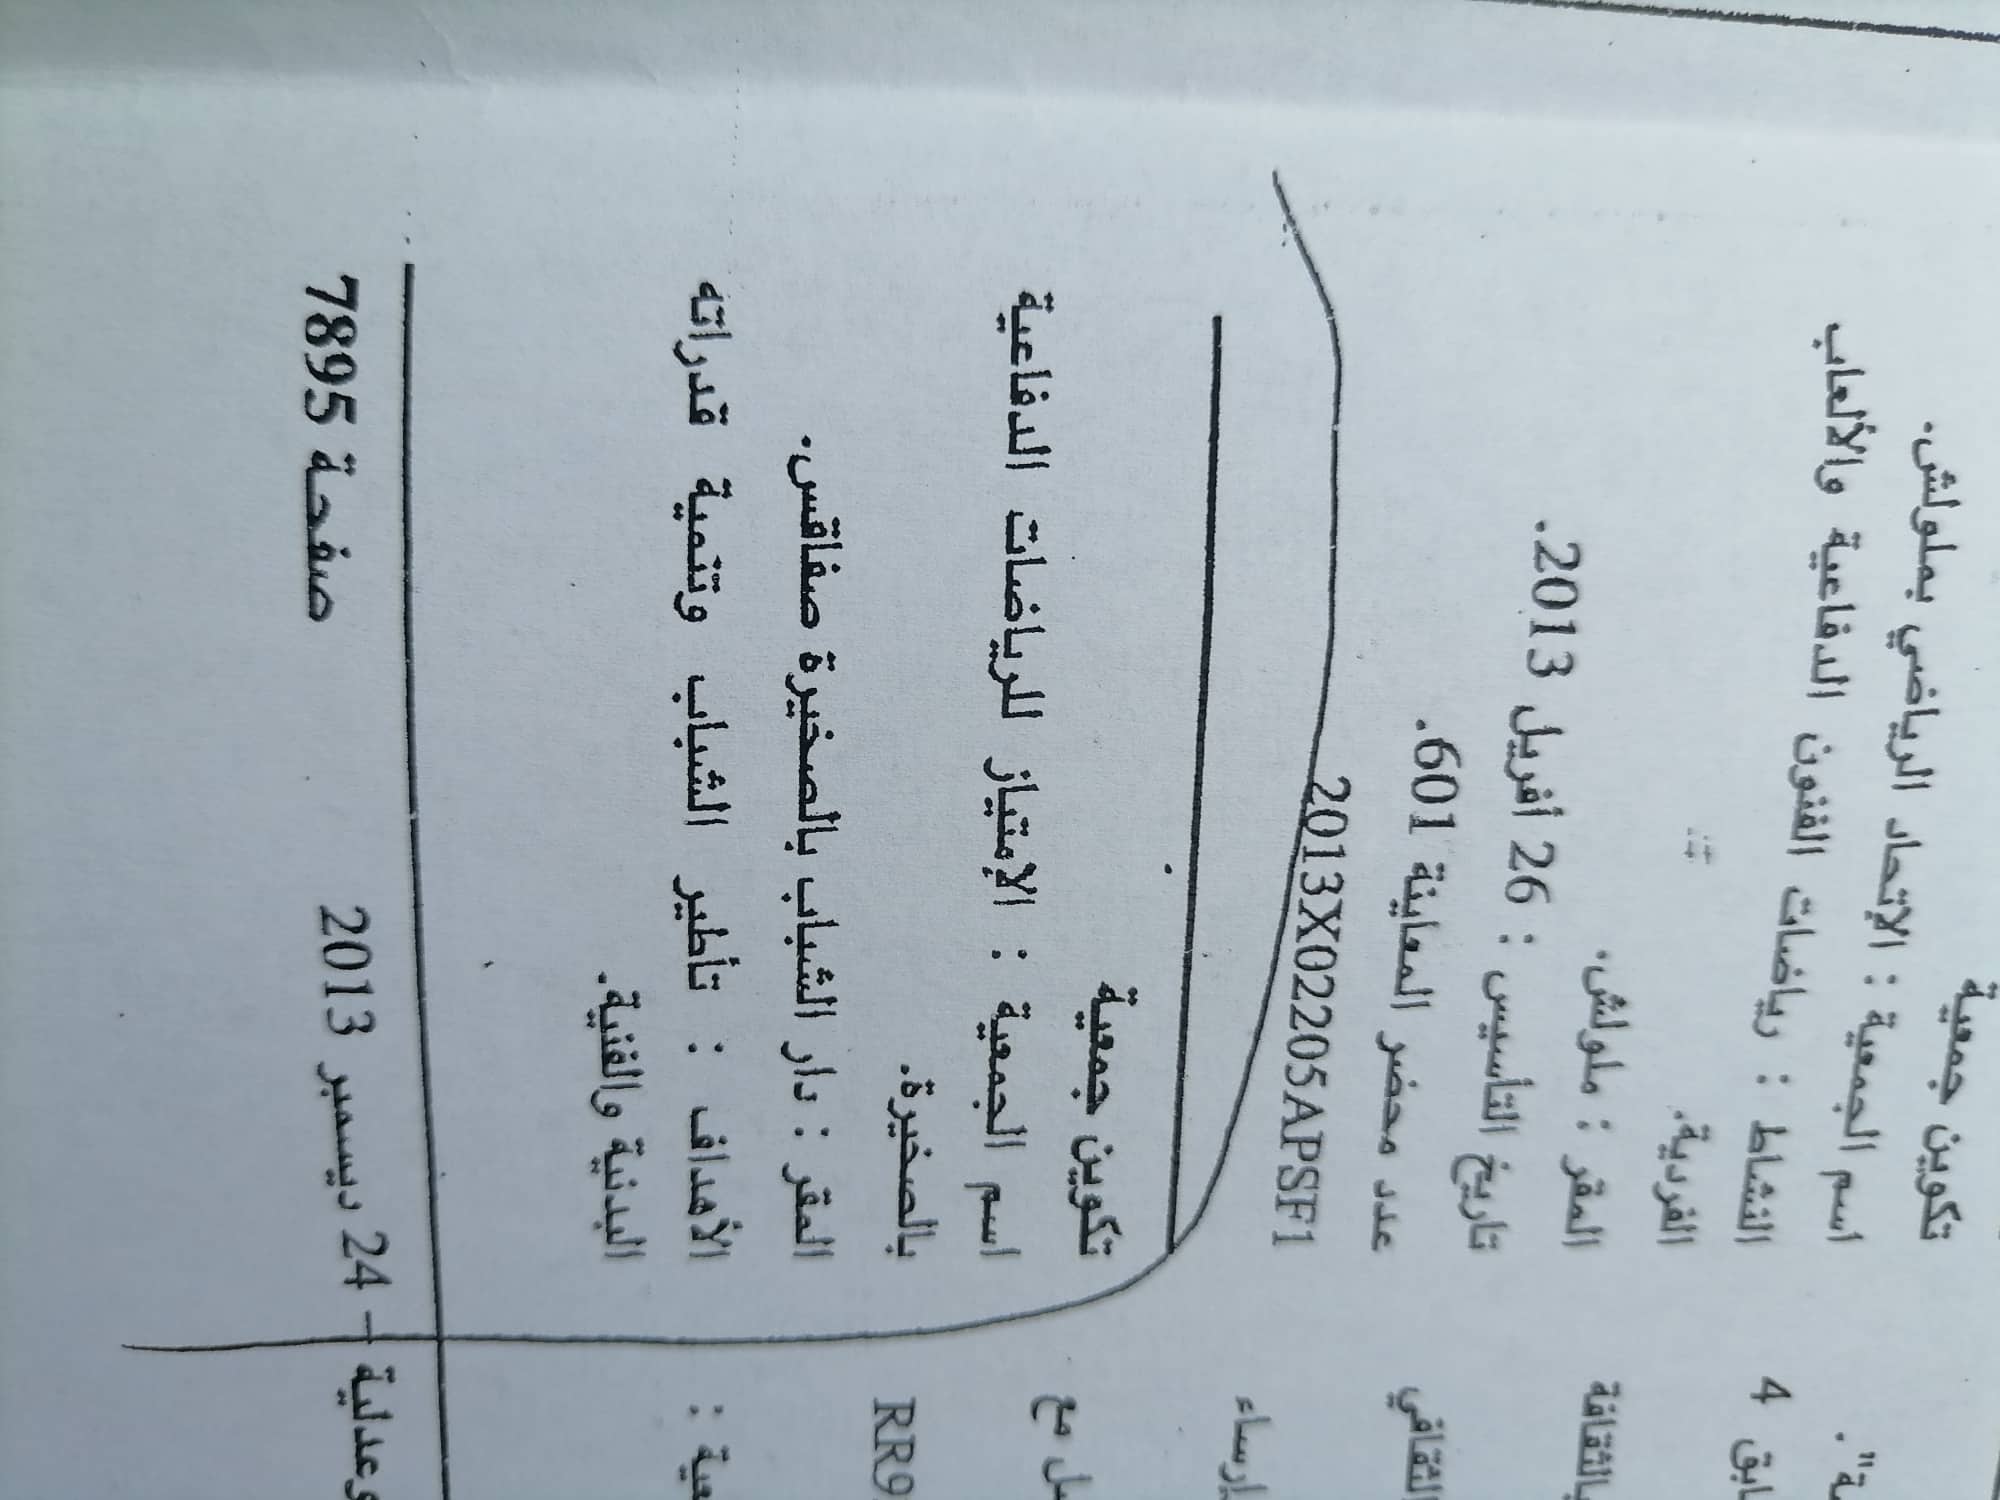 تكوين جمعية
اسم الجمعية : الإتحاد الرياضي بملولش.
النشاط : رياضات الفنون الدفاعية والألعاب
الفردية.
المقر : ملولش.
تاريخ التأسيس : 26 أفريل 2013.
عدد محضر المعاينة 601.
2013X02205APSF1
تكوين جمعية
اسم الجمعية : الإمتياز للرياضات الدفاعية
بالصخيرة.
المقر : دار الشباب بالصخيرة صفاقس.
الأهداف : تأطير الشباب وتنمية قدراته
البدنية والفنية.
24 ديسمبر 2013
صفحة 7895
4
الثقافي
إرساء
مع
RR9